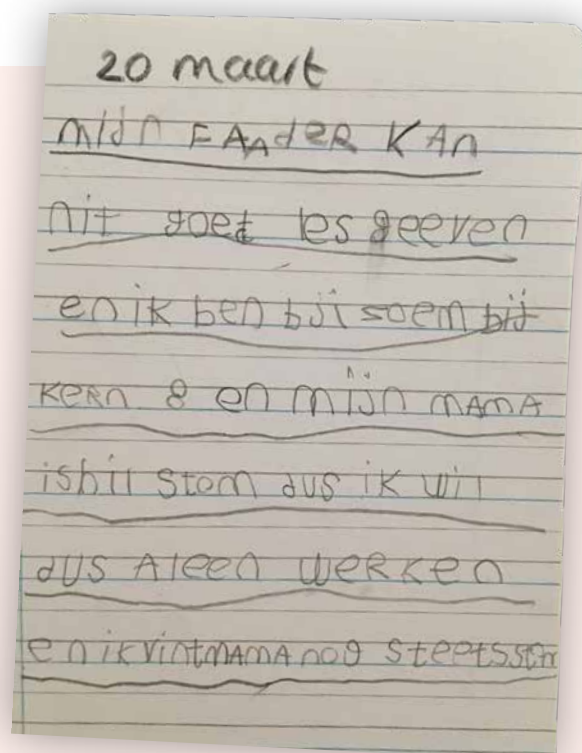 20 maart
mijn FAAdeR KAn
nit goet les geeven
en ik ben bij soem bij
KeRn 8 en mijn mAmA
is bij stom dus ik wil
dus Aleen weRKen
en ik vint mAmA nog steets